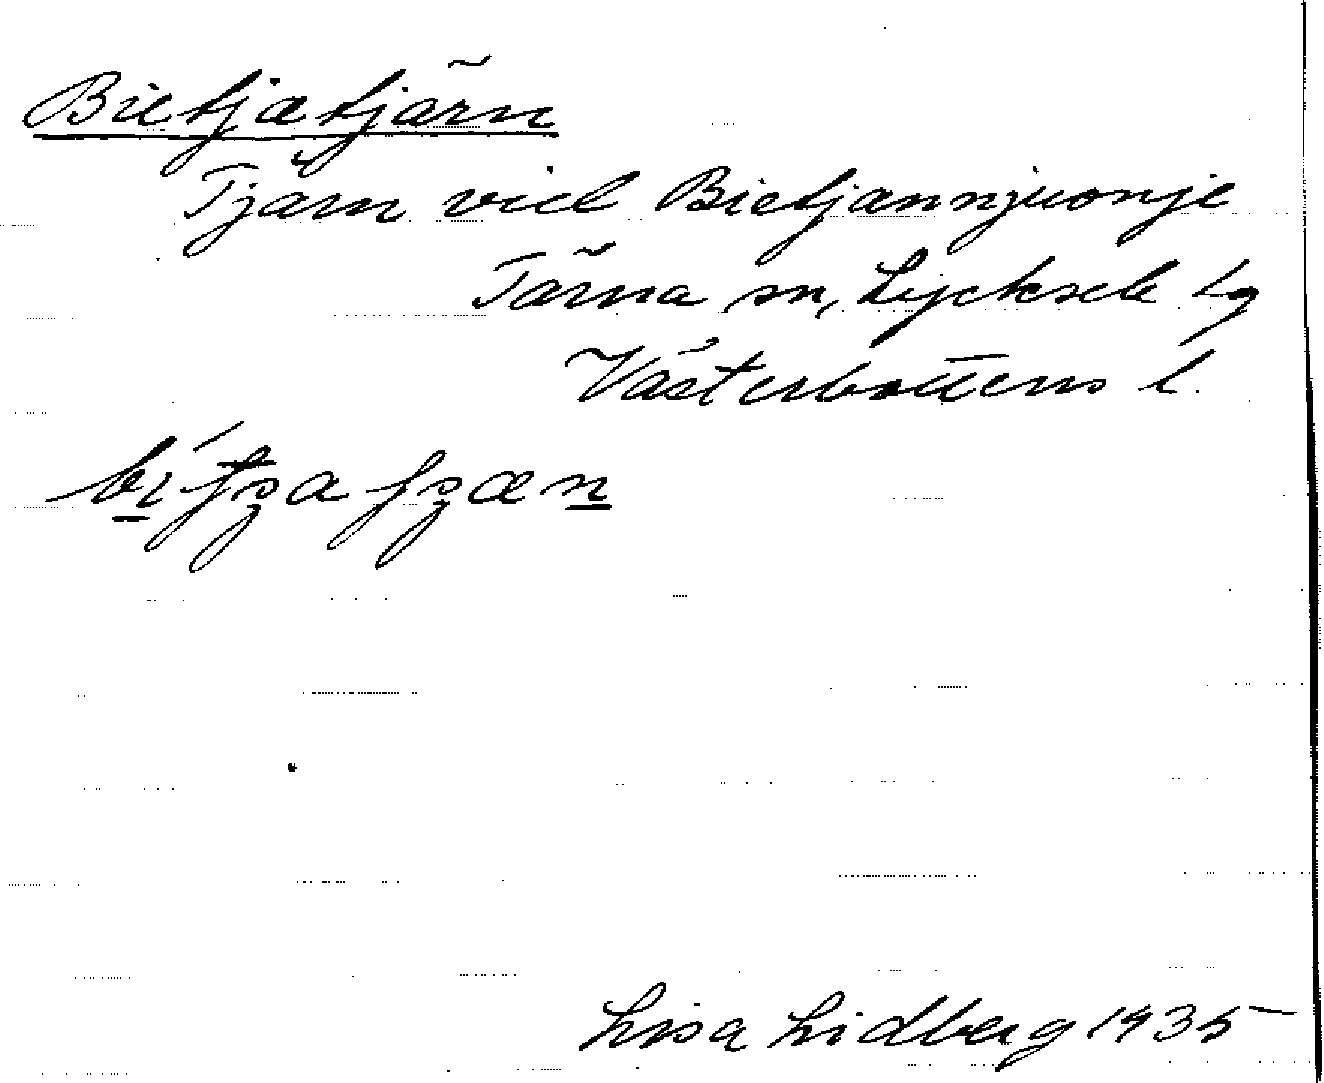 Bietjatjärn
Tjärn vid Bietjannjuonje
Tärna sn, Lycksele lg
Västerbottens l.
Lisa Lidberg 1935